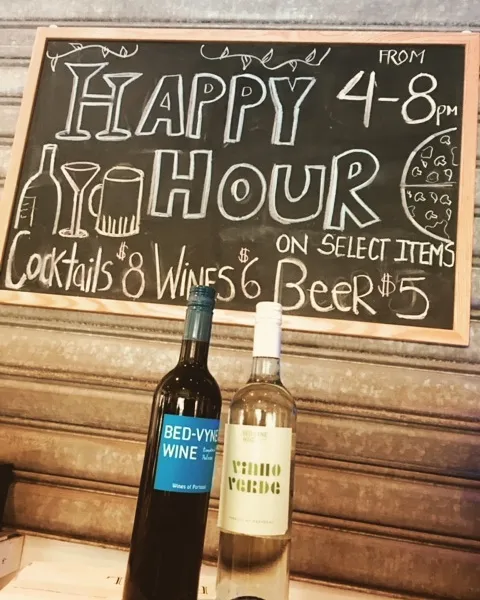 HAPPY
HOUR
FROM
4-8PM
ON SELECT ITEMS
Cocktails $8 WINES $6 BeeR $5
BED-VYNE
WINE
Wines of Portugal
VINHO
VERDE